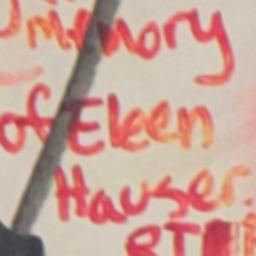 memory
of Eleen
Hauser.